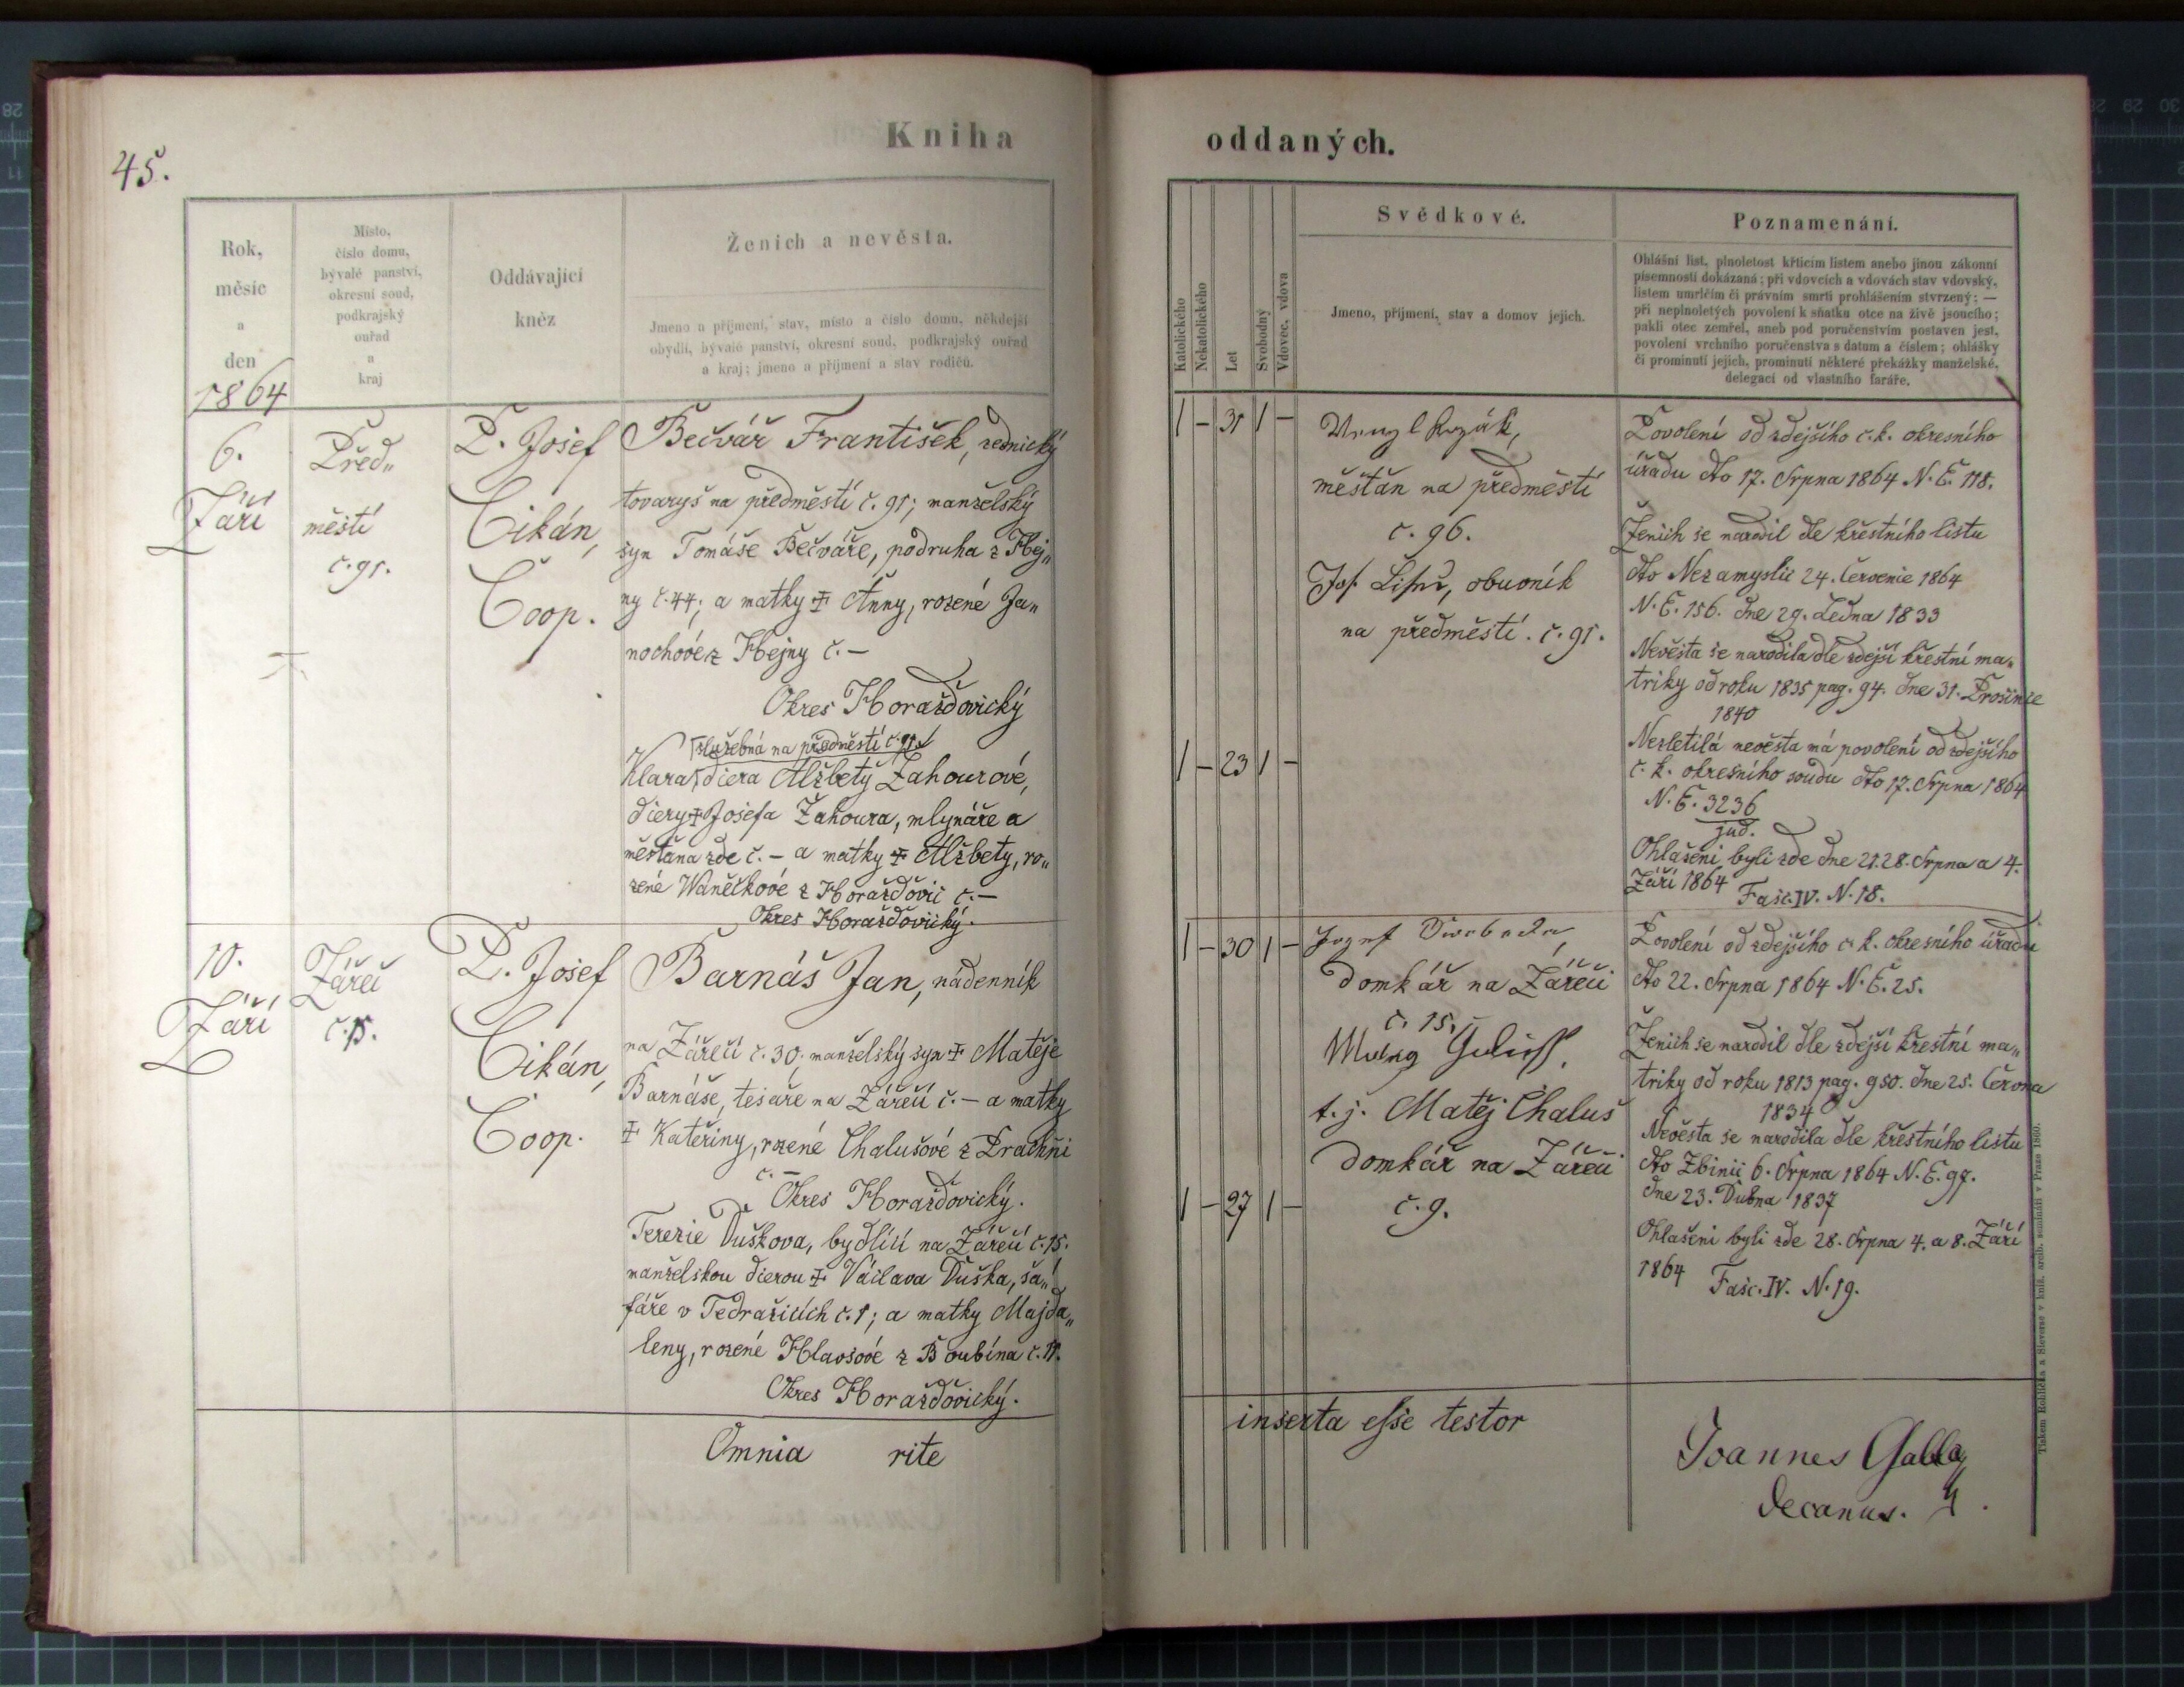 45.
Kniha
Rok,
měsíc
a
den
1864
Místo,
číslo domu,
bývalé panství,
okresní soud,
podkrajský
ouřad
a
kraj
Oddávající
kněz
Ženich a nevěsta.
Jmeno a příjmení, stav, místo a číslo domu, někdejší
obydlí, bývalé panství, okresní soud, podkrajský ouřad
a kraj; jmeno a příjmení a stav rodičů.
6.
Září
Před„
městí
č. 91.
P. Josef
Cikán,
Coop.
Bečvář František, zednický
tovaryš na předměstí č. 91; manželský
syn Tomáše Bečváře, podruha z Hej„
ny č. 44; a matky ‡ Anny, rozené Ja„
nochové z Hejny č. –
Okres Horažďovický
služebná na předměstí č. 91.
Klara, dcera Alžběty Zahourové,
dcery ‡ Josefa Zahoura, mlynáře a
měšťana zde č. – a matky ‡ Alžbety, ro„
zené Waněčkové z Horažďovic č. –
Okres Horažďovický.
10.
Září
Zářeč
č. 15.
P. Josef
Cikán,
Coop.
Barnáš Jan, nádenník
na Zářečí č. 30; manželský syn ‡ Matěje
Barnáše, tesaře na Zářečí č. – a matky
‡ Kateřiny, rozené Chalušové z Prachni
č. –
Okres Horažďovický.
Terezie Duškova, bydlící na Zářečí č. 15.
manželskou dcerou ‡ Václava Duška, ša„
fáře v Tedražicích č. 1; a matky Majda„
leny, rozené Hlavsové z Boubína č. 11.
Okres Horažďovický.
Omnia rite
oddaných.
Katolického
Nekatolického
Let
Svobodný
Vdovec, vdova
Svědkové.
Jmeno, příjmení, stav a domov jejich.
Poznamenání.
Ohlášní list, plnoletost křticím listem anebo jinou zákonní
písemností dokázaná; při vdovcích a vdovách stav vdovský,
listem umrlčím či právním smrti prohlášením stvrzený; —
při neplnoletých povolení k sňatku otce na živě jsoucího;
pakli otec zemřel, aneb pod poručenstvím postaven jest,
povolení vrchního poručenstva s datum a číslem; ohlášky
či prominutí jejich, prominutí některé překážky manželské,
delegací od vlastního faráře.
1 – 31 1 –
měšťan na předměstí
č. 96.
Jos. obuvník
na předměstí. č. 91.
1 – 23 1 –
Povolení od zdejšího c. k. okresního
úřadu dto 17. Srpna 1864 N. E. 118.
Ženich se narodil dle křestního listu
dto Nezamyslic 24. Července 1864
N. E. 156. dne 29. Ledna 1833
Nevěsta se narodila dle zdejší křestní ma„
triky od roku 1835 pag. 94. dne 31. Prosince
1840
Nezletilá nevěsta má povolení od zdejšího
c. k. okresního soudu dto 17. Srpna 1864
N. E. 3236
jud.
Ohlašeni byli zde dne 21. 28. Srpna a 4.
Září 1864 Fasc. IV. N. 18.
1 – 30 1 –
Jozef Swoboda,
domkář na Zářečí
č. 15.
t. j. Matěj Chaluš
domkář na Zářečí
č. 9.
1 – 27 1 –
Povolení od zdejšího c. k. okresního úřadu
dto 22. Srpna 1864 N. E. 25.
Ženich se narodil dle zdejší křestní ma„
triky od roku 1813 pag. 950. dne 25. Června
1834
Nevěsta se narodila dle křestního listu
dto Zbinic 6. Srpna 1864 N. E. 97.
dne 23. Dubna 1837
Ohlašeni byli zde 28. Srpna 4. a 8. Září
1864 Fasc. IV. N. 19.
inserta esse testor
Joannes Galla
decanus.
Tiskem Rohlíčka a Sieverse v kníž. arcib. semináři v Praze 1860.